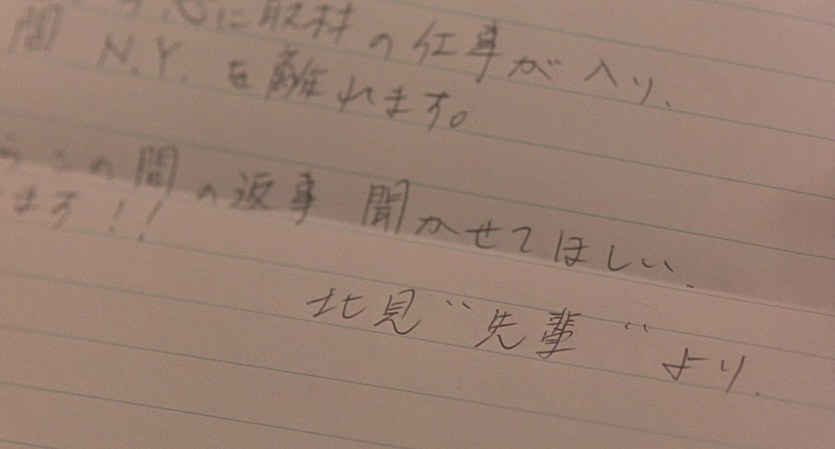 に取材の仕事が入り、
間 N.Y.を離れます。
この間の返事 聞かせてほしい、
ます!!
北見“先輩”より、